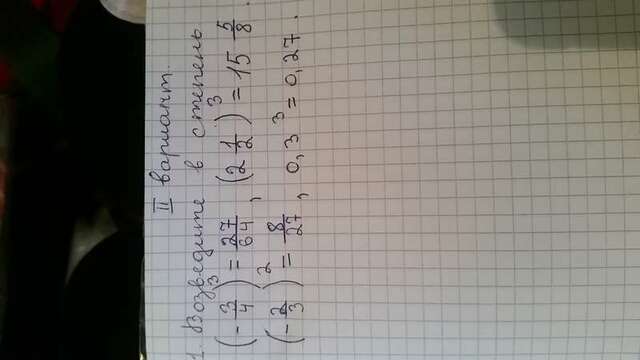 II вариант.
1. Возведите в степень
(-3/4)^3 = 27/64, (2 1/2)^3 = 15 5/8.
(-2/3)^2 = 8/27, 0,3^3 = 0,27.